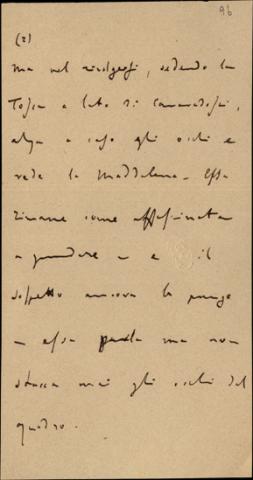 96
(2)
ma nel rivolgersi, vedendo la
Tosca a lato di Cavaradossi,
alza a caso gli occhi e
vede la Maddalena - Essa
rimane come affascinata
a guardare - e il
sospetto ancora la punge
- essa parla ma non
stacca mai gli occhi dal
quadro.